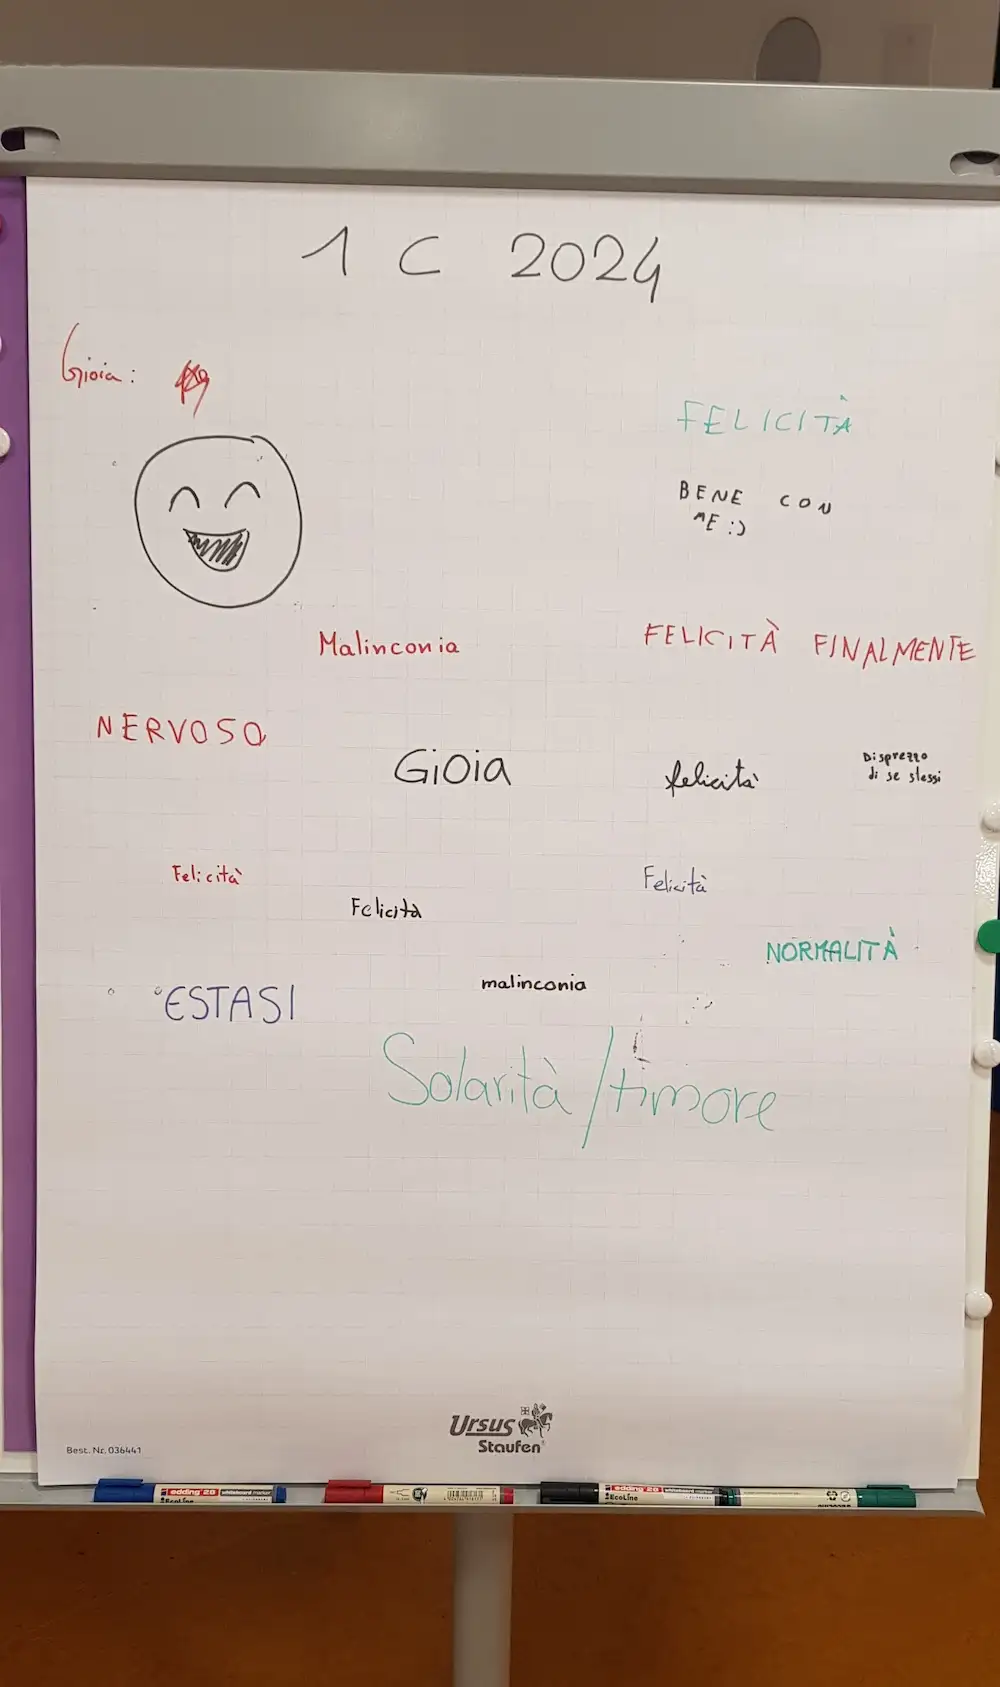 1 C 2024
Gioia:
FELICITÀ
BENE CON
ME :)
Malinconia
FELICITÀ FINALMENTE
NERVOSO
GiOia
felicità
Disprezzo
di se stessi
Felicità
Felicità
Felicità
NORMALITÀ
malinconia
ESTASI
Solarità/timore
Ursus
Staufen
Best. Nr. 036441
edding 28 whiteboard marker
EcoLine
edding 28 whiteboard marker
EcoLine